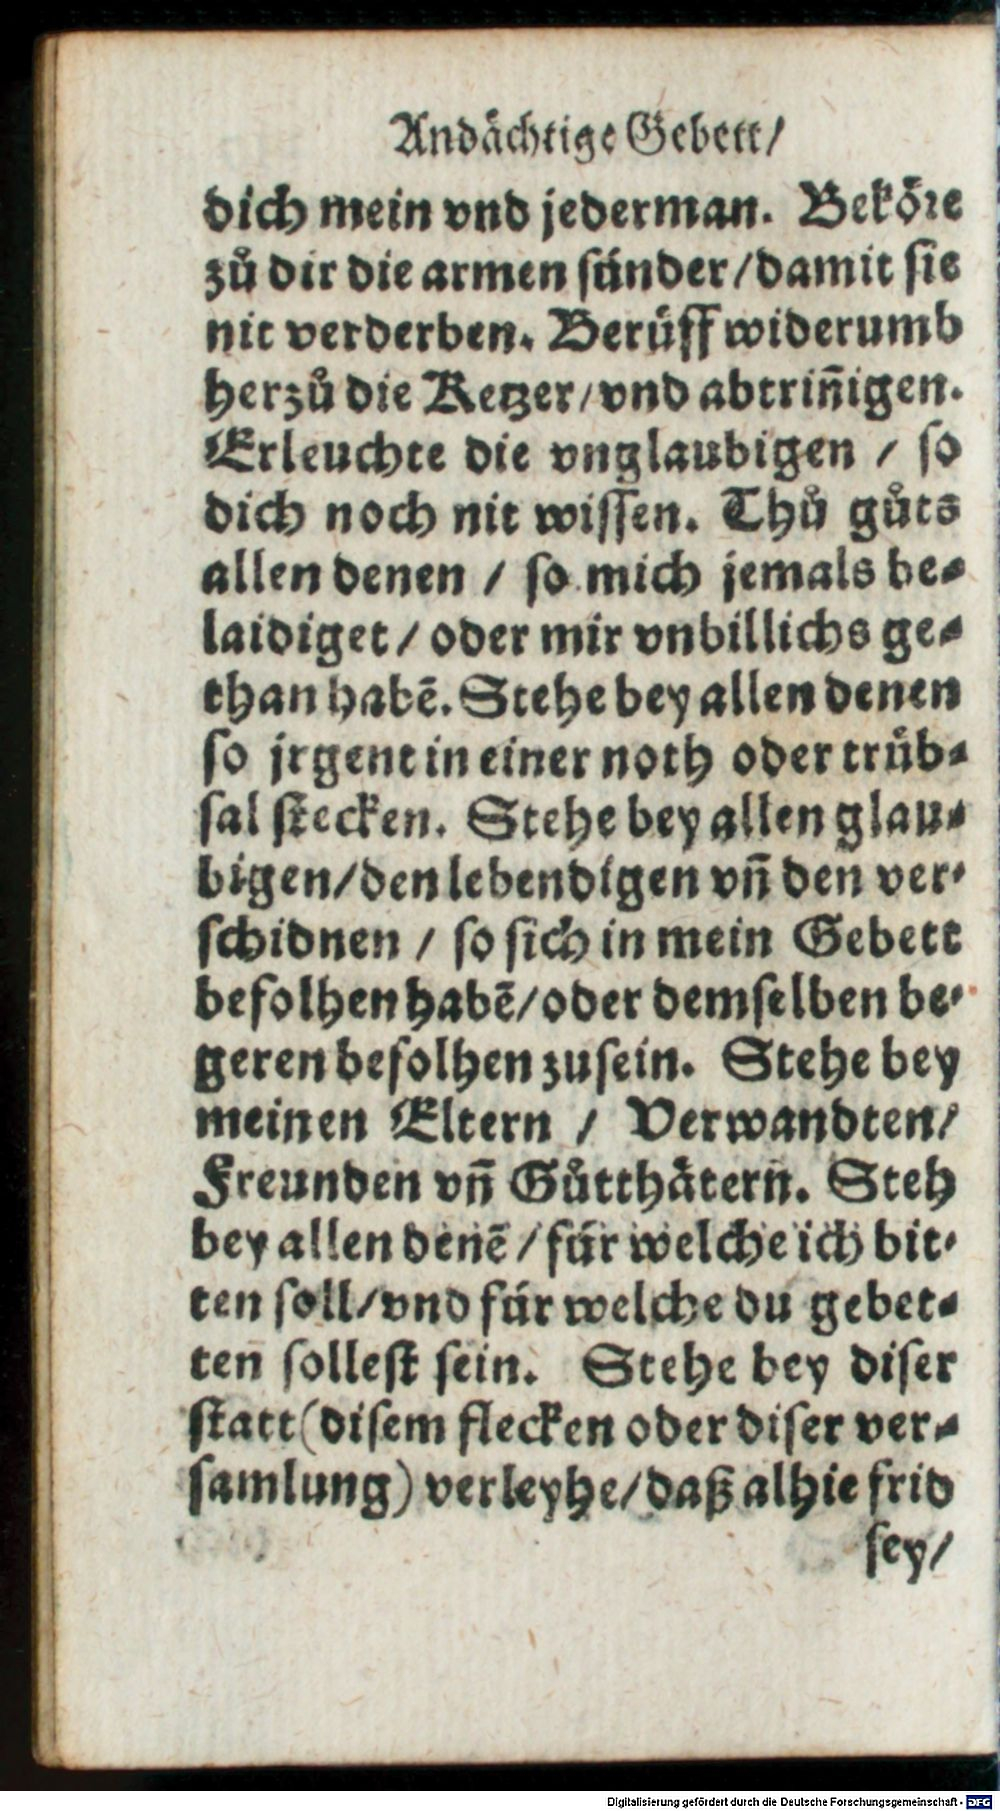 Andächtige Gebett/
dich mein vnd jederman. Bekoͤre
zuͦ dir die armen suͤnder/damit sie
nit verderben. Beruͤff widerumb
herzuͦ die Ketzer/vnd abtrin̄igen.
Erleuchte die vnglaubigen / so
dich noch nit wissen. Thuͦ guͦts
allen denen / so mich jemals be-
laidiget/ oder mir vnbillichs ge-
than habē. Stehe bey allen denen
so jrgent in einer noth oder truͤb-
sal stecken. Stehe bey allen glau-
bigen/den lebendigen vn̄ den ver-
schidnen / so sich in mein Gebett
befolhen habē/oder demselben be-
geren befolhen zusein. Stehe bey
meinen Eltern / Verwandten/
Freunden vn̄ Guͦtthaͤtern. Steh
bey allen denē/fuͤr welche ich bit-
ten soll/vnd fuͤr welche du gebet-
ten sollest sein. Stehe bey diser
statt (disem flecken oder diser ver-
samlung) verleyhe/daß alhie frid
sey/
Digitalisierung gefördert durch die Deutsche Forschungsgemeinschaft - DFG